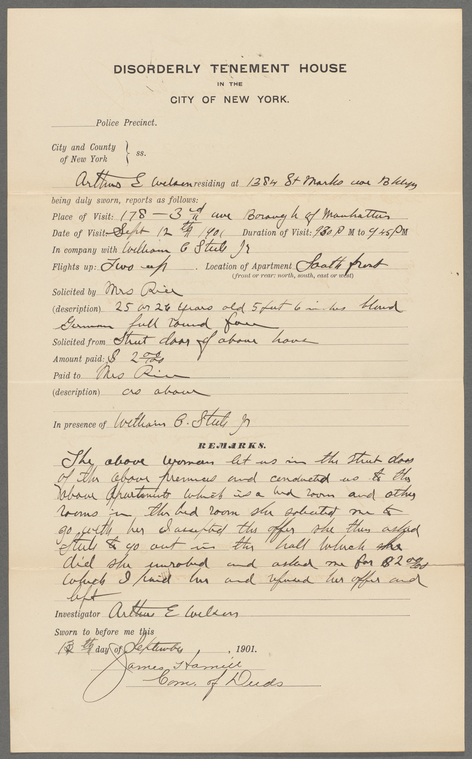 DISORDERLY TENEMENT HOUSE
IN THE
CITY OF NEW YORK.
Police Precinct.
City and County
of New York } ss.
Arthur E Wilson residing at 1384 St Marks ave Bklyn
being duly sworn, reports as follows:
Place of Visit: 178-3rd ave Borough of Manhattan
Date of Visit Sept 12th 1901 Duration of Visit: 930 P M to 945 PM
In company with William C Steele Jr
Flights up: Two up . Location of Apartment South front
(front or rear: north, south, east or west)
Solicited by Mrs Rice
(description) 25 or 26 years old 5 feet 6 inches blond
German full round face
Solicited from Street door of above house
Amount paid: $ 2 00/00
Paid to Mrs Rice
(description) as above
In presence of William C. Steele Jr
REMARKS.
The above woman let us in the street door
of the above premises and conducted us to the
above apartments which is a bed room and other
rooms in the bed room she solicited me to
go with her I accepted the offer she then asked
Steele to go out in the hall which he
did she unrobed and asked me for $2 00/00
which I paid her and refused her offer and
left
Investigator Arthur E Wilson
Sworn to before me this
13th day of September , 1901.
James Hamill
Com. of Deeds